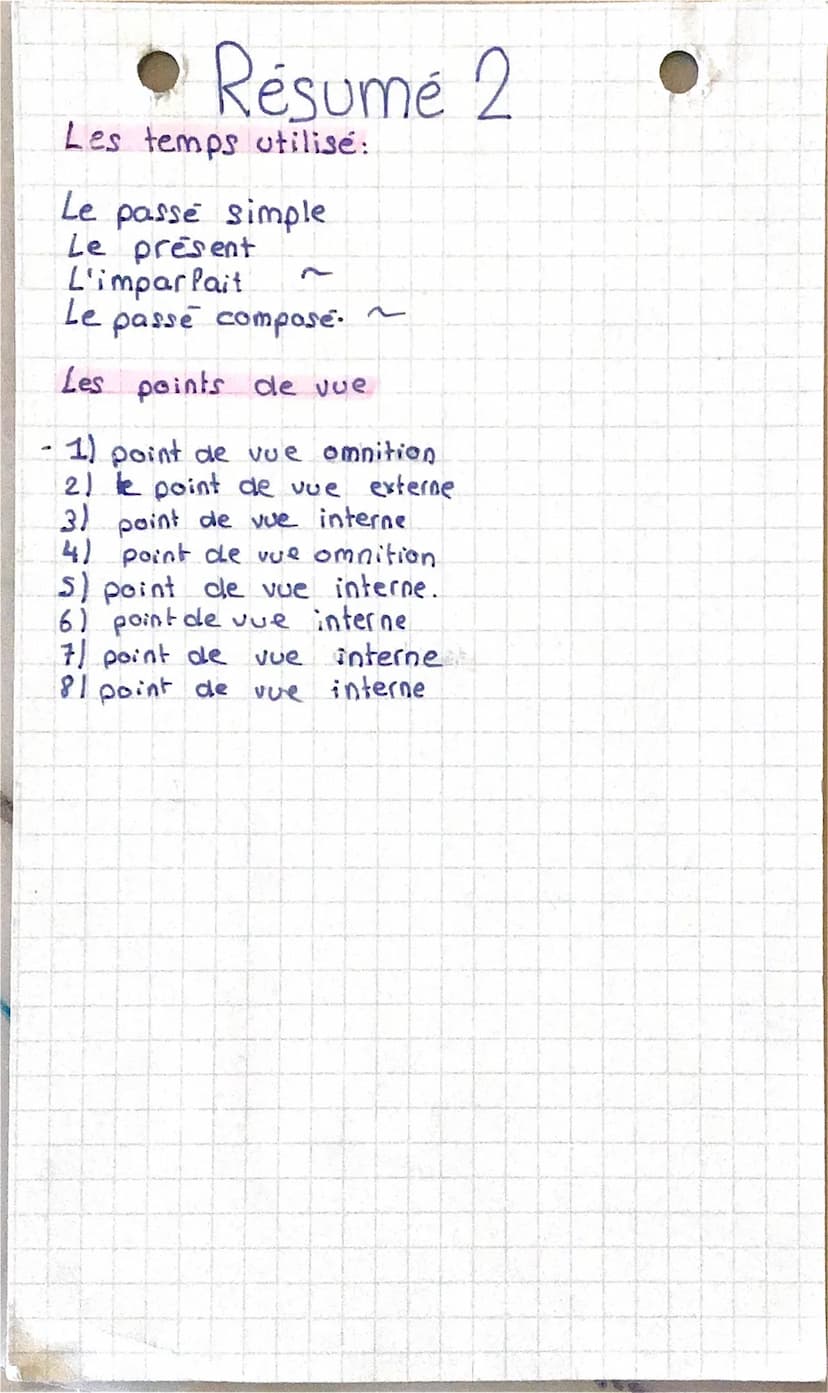 Résumé 2
Les temps utilisé:
Le passé simple
Le présent
L'imparfait ~
Le passé composé. ~
Les points de vue
- 1) point de vue omnition
2) le point de vue externe
3) point de vue interne
4) point de vue omnition
5) point de vue interne.
6) point de vue interne
7) point de vue interne
8) point de vue interne